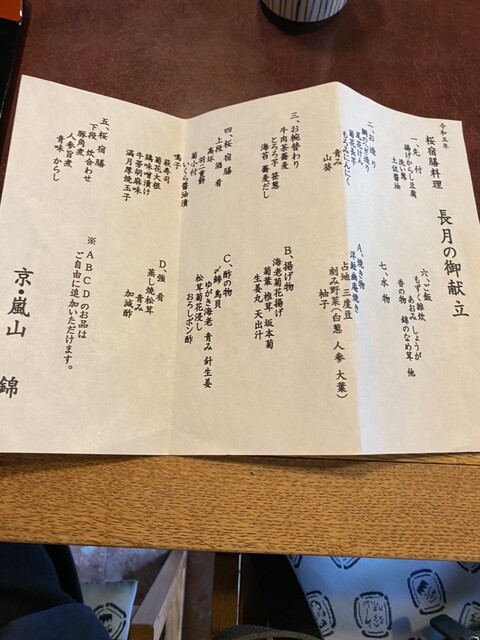 令和五年
桜宿膳料理
長月の御献立
一、先付
揚げからし豆腐
洗い葱
土佐醤油
二、お造り
鯛へぎ造り
菊花長芋
もろみにんにく
青み
山葵
三、お椀替わり
牛肉茶蕎麦
とろろ芋 笹葱
海苔 蕎麦だし
四、桜宿膳
上段 酒肴
高坏
羽二重餅
菊小付
いくら醤油漬
鳴子
萩寿司
菊花大根
鶏味噌漬け
牛蒡胡麻味
満月厚焼玉子
五、桜宿膳
下段 炊合わせ
豚角煮
人参旨煮
青味 からし
六、ご飯
もずく雑炊
あおみ しょうが
香の物 錦のなめ茸 他
七、水物
A、焼き物
洋麺幽庵焼き
占地 三度豆
刻み野菜(白葱 人参 大葉)
柚子
B、揚げ物
海老菊花揚げ
菊葉 椎茸 坂本菊
生姜丸 天出汁
C、酢の物
〆鯖 鳥貝
ゆがき海老 青み 針生姜
松茸菊花浸し
おろしポン酢
D、強肴
蒸し焼松茸
青み
加減酢
※ABCDのお品は
ご自由に追加いただけます。
京・嵐山 錦